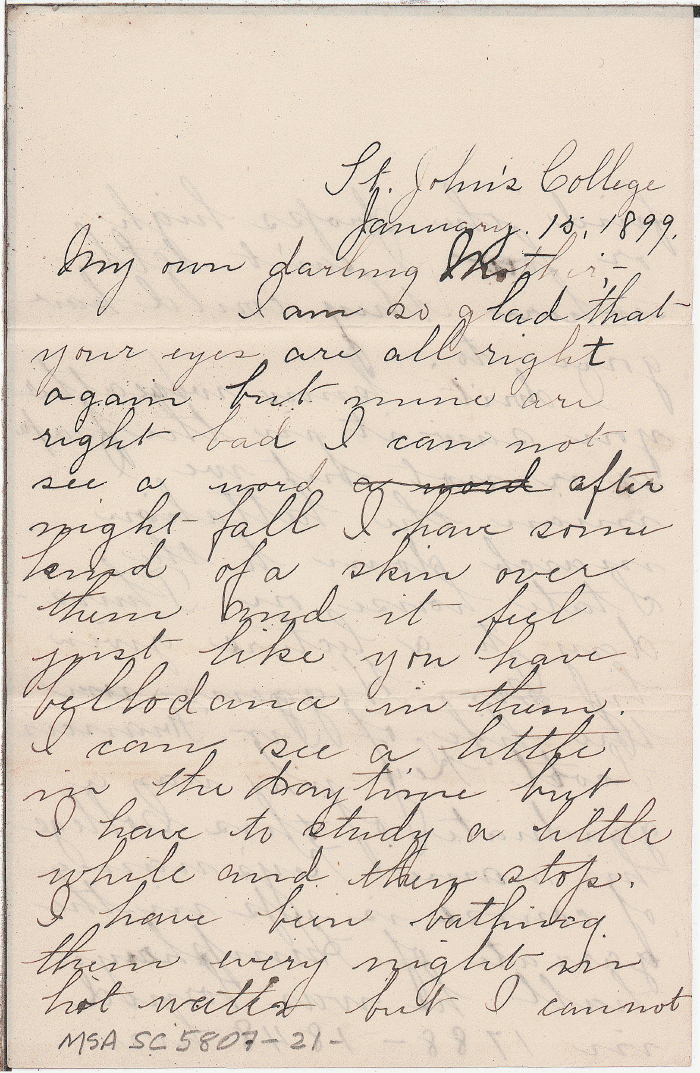 St. John's College
January. 15, 1899.
My own darling Mother,-
I am so glad that
your eyes are all right
again but mine are
right bad I can not
see a word a word after
night-fall I have some
kind of a skin over
them and it feel
just like you have
bellodana in them.
I can see a little
in the daytime but
I have to study a little
while and then stop.
I have been bathing
them every night in
hot watter but I cannot
MSA SC 5807-21-